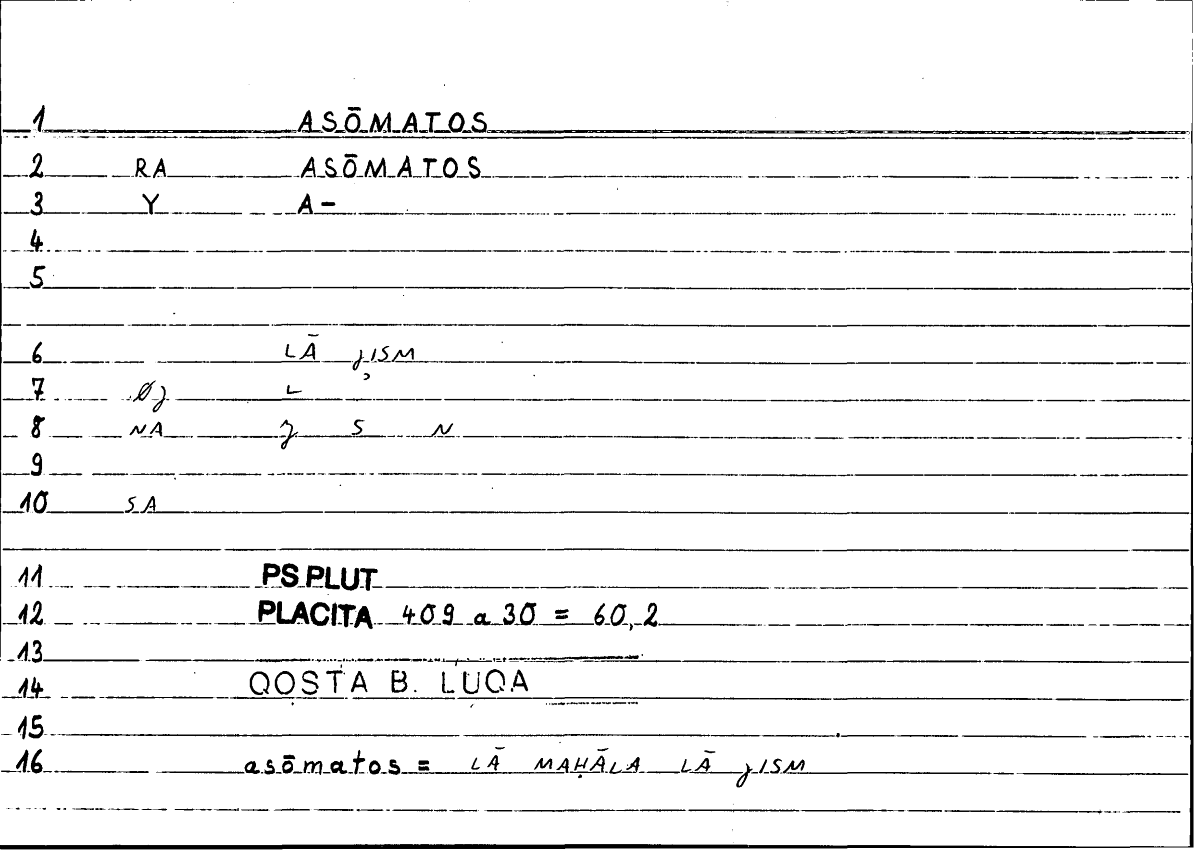 1 ASŌMATOS
2 RA ASŌMATOS
3 Y A-
4
5
6 LĀ ȷISM
7 Øȷ L
8 NA ȷ S N
9
10 SA
11 PS PLUT
12 PLACITA 409 a 30 = 60,2
13
14 QOSṬA B. LUQA
15
16 asōmatos = LĀ MAḤĀLA LĀ ȷISM